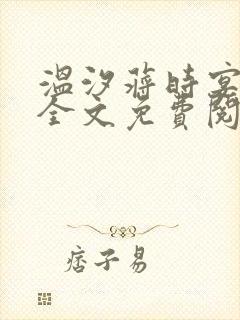 溫汐蒋時宴
全文免費閱
痞子易